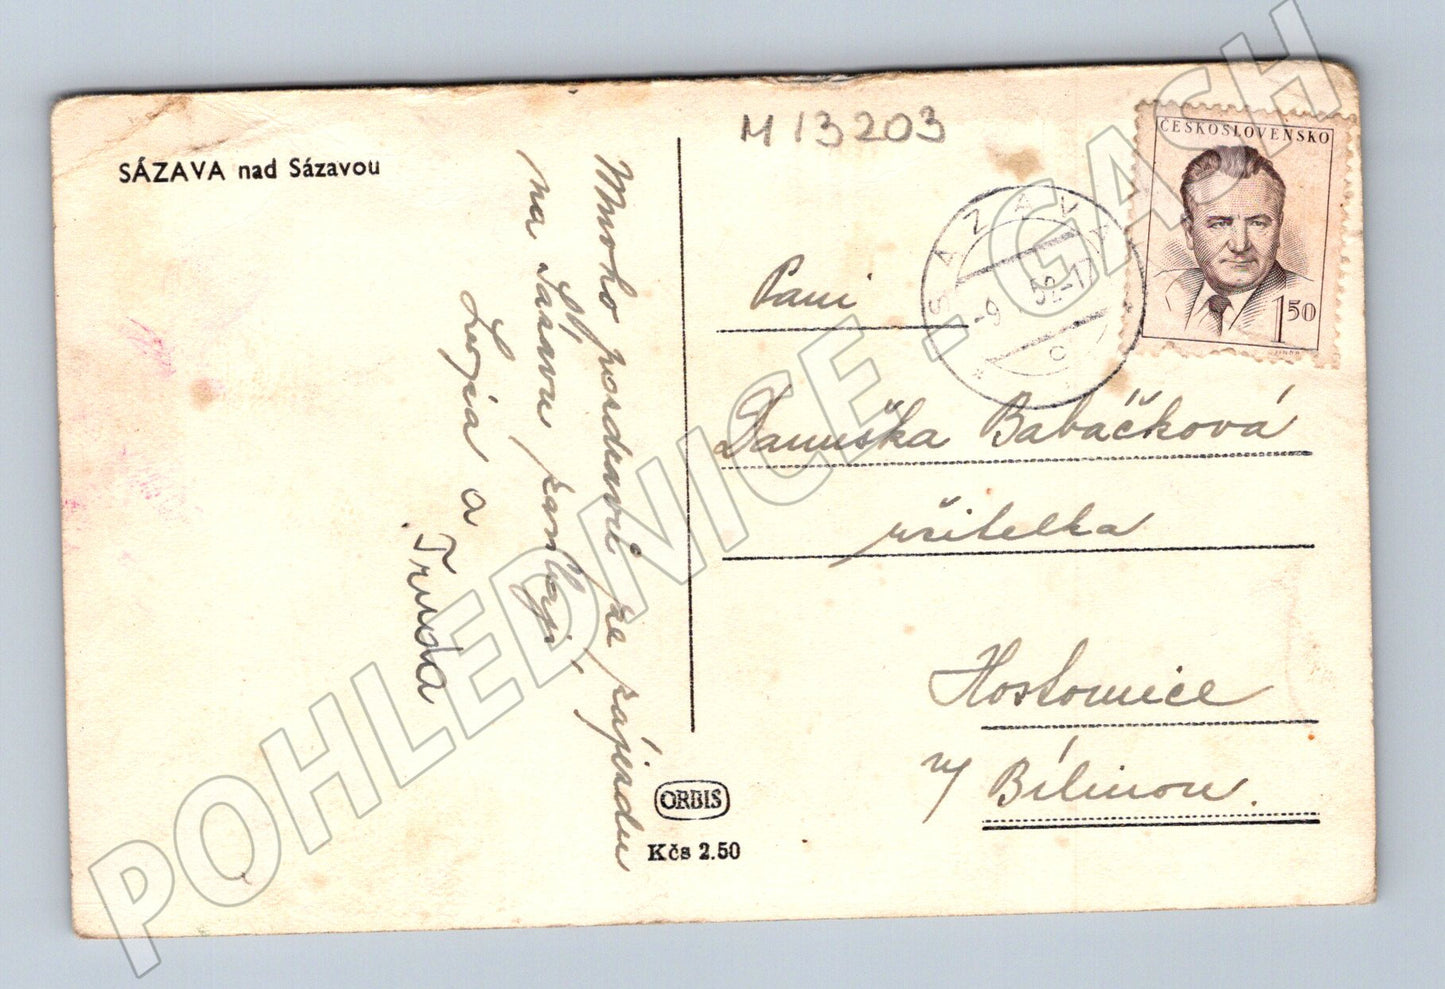 SÁZAVA nad Sázavou
M 13203
ČESKOSLOVENSKO
1 50
SÁZAVA
-9. 52-17
c
Mnoho pozdravů ze zájezdu
na Sázavu
a
Truda
Paní
Danuška Babáčková
učitelka
Hostomice
n/ Bílinou.
ORBIS
Kčs 2.50
POHLEDNICE - GASH